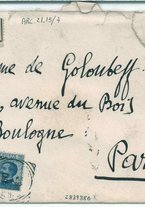 ARC 21.15/7
me de Goloubeff
, avenue du Bois
Boulogne :
Par
2839386